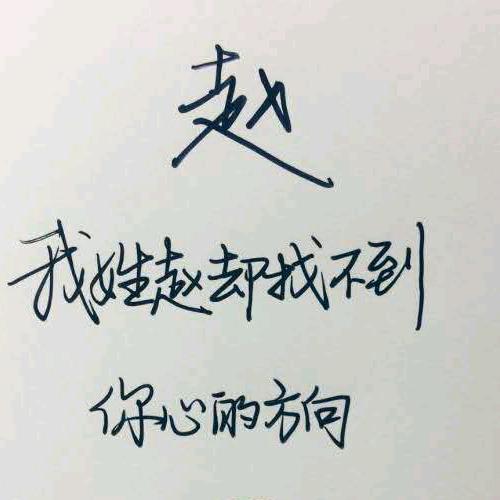 赵
我姓赵却找不到
你心的方向